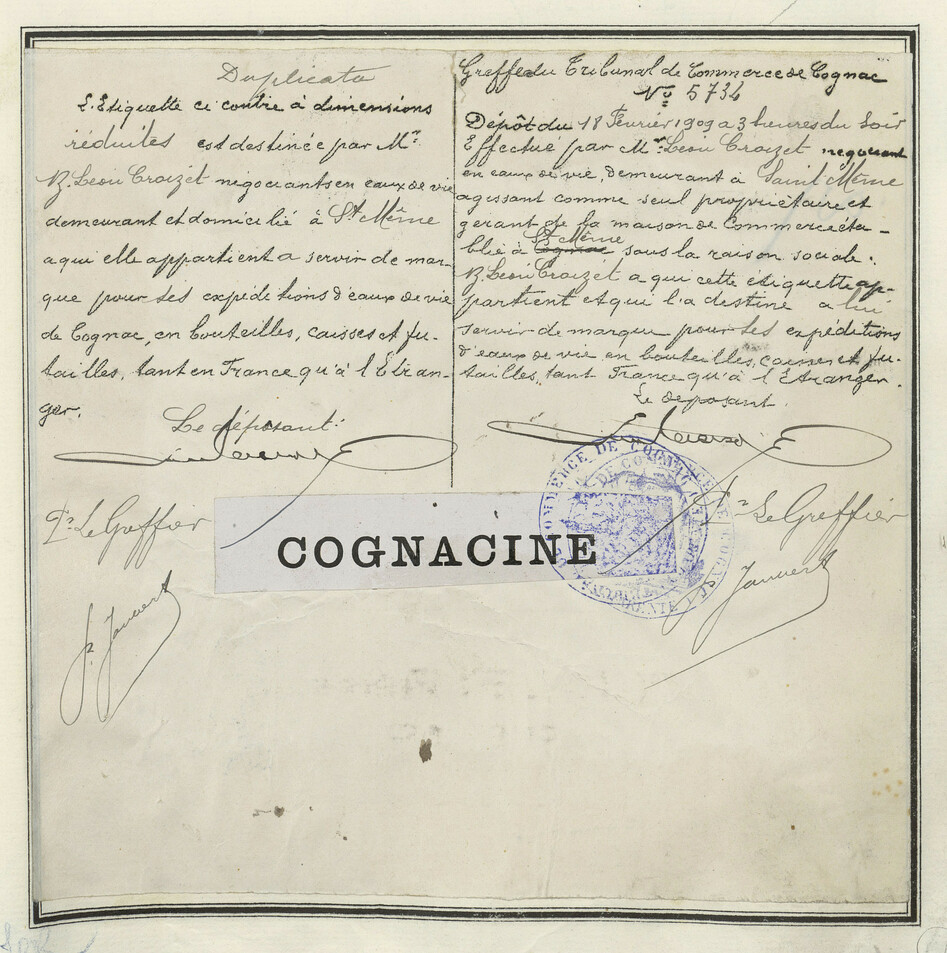 Duplicata
L'Etiquette ci contre à dimensions
réduites est destinée par Mr.
B. Léon Croizet négociants en eaux de vie
demeurant et domicilié à St. Même
a qui elle appartient a servir de mar-
que pour ses expéditions d'eaux de vie
de Cognac, en bouteilles, caisses et fu-
tailles, tant en France qu'à l'Etran-
ger.
Le déposant:
Pr. Le Greffier
P. Jauvert
Greffe du Tribunal de Commerce de Cognac
No 5734
Dépôt du 18 Février 1909 a 3 heures du Soir
Effectue par Mr. Léon Croizet négociant
en eaux de vie, demeurant à Saint Même
agissant comme seul propriétaire et
gerant de sa maison de Commerce éta-
blie à Cognac St Même sous la raison sociale:
B. Léon Croizet a qui cette étiquette ap-
partient et qui l'a destiné a lui
servir de marque pour ses expéditions
d'eaux de vie en bouteilles, caisses et fu-
tailles, tant France qu'à l'Etranger.
Le deposant
Pr Le Greffier
P. Jauvert
COGNACINE
COMMERCE DE COGNAC